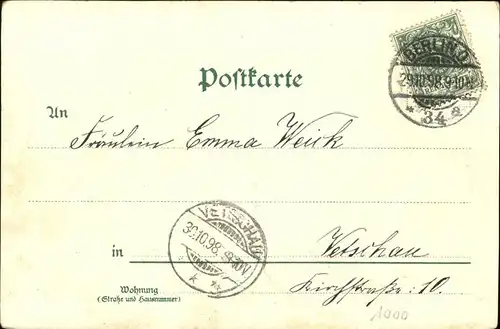 BERLIN.O.
29.10.98.9-10N.
34
Postkarte
An
Fräulein Emma Weick
VETSCHAU
30.10.98.
in Vetschau
Wohnung Kirchstraße: 10.
(Straße und Hausnummer)
1000